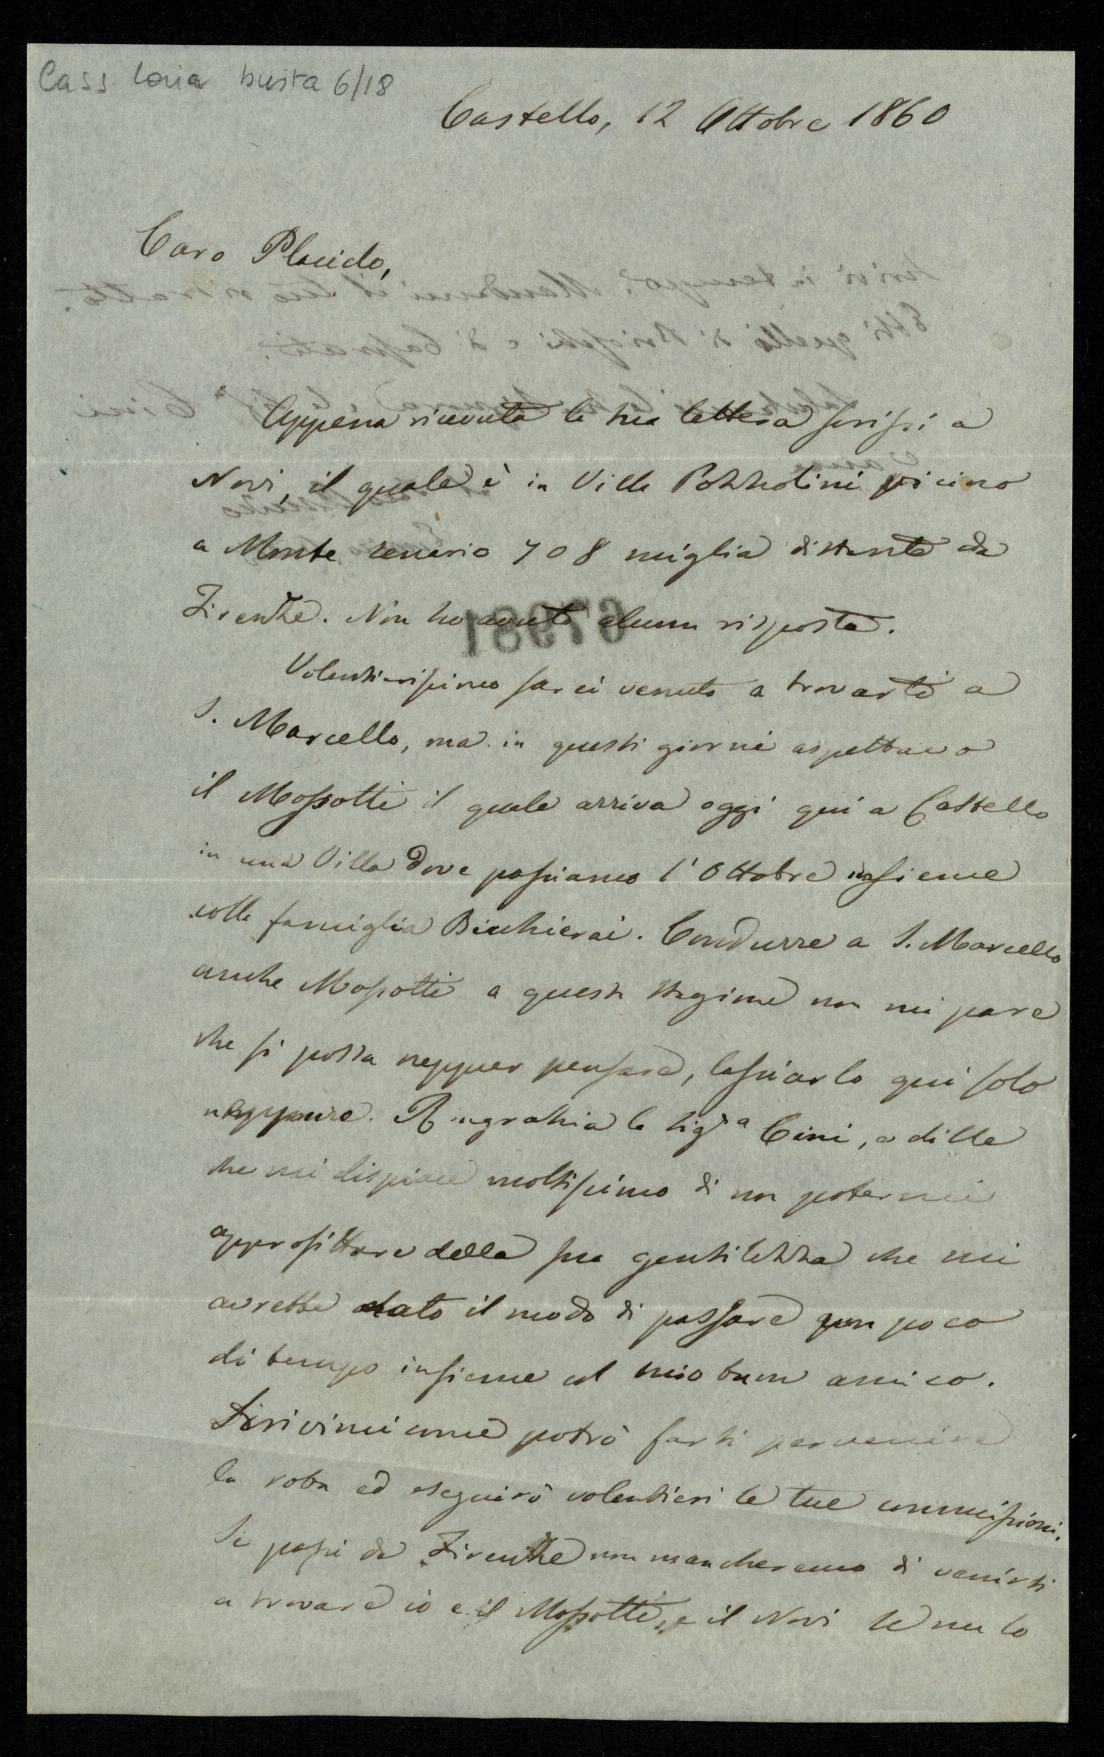 Cass. Loria busta 6/18
Castello, 12 Ottobre 1860
Caro Placido,
Appena ricevuta la tua lettera scrissi a
Novi, il quale è in Villa Pozzolini vicino
a Monte senario 7 o 8 miglia distante da
Firenze. Non ho avuto alcuna risposta.
67981
Volentierissimo sarei venuto a trovarti a
S. Marcello, ma in questi giorni aspettavo
il Mossotti il quale arriva oggi qui a Castello
in una Villa dove passiamo l'Ottobre insieme
colla famiglia Bichierai. Condurre a S. Marcello
anche Mossotti a questa stagione non mi pare
che si possa neppur pensare, lasciarlo qui solo
neppure. Ringrazia la Sigra Cini, e dille
che mi dispiace moltissimo di non potermi
approfittare della sua gentilezza che mi
avrebbe dato il modo di passare un poco
di tempo insieme col mio buon amico.
Scrivimi come potrò farti pervenire
la roba ed eseguirò volentieri le tue commissioni.
Se passi da Firenze non mancheremo di venirti
a trovare io e il Mossotti, e il Novi se me lo